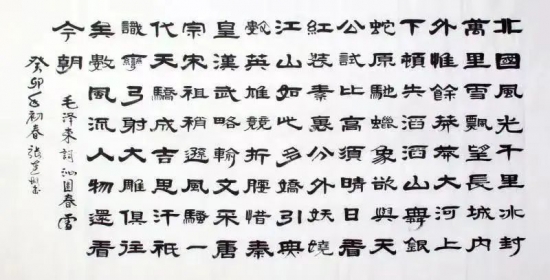 北國風光千里冰封
萬里雪飄望長城內
外惟餘莽莽大河上
下頓失滔滔山舞銀
蛇原馳蠟象欲與天
公試比高須晴日看
紅裝素裹分外妖嬈
江山如此多嬌引無
數英雄競折腰惜秦
皇漢武略輸文采唐
宗宋祖稍遜風騷一
代天驕成吉思汗祇
識彎弓射大雕俱往
矣數風流人物還看
今朝
毛泽東詞沁园春雪
癸卯年初春張